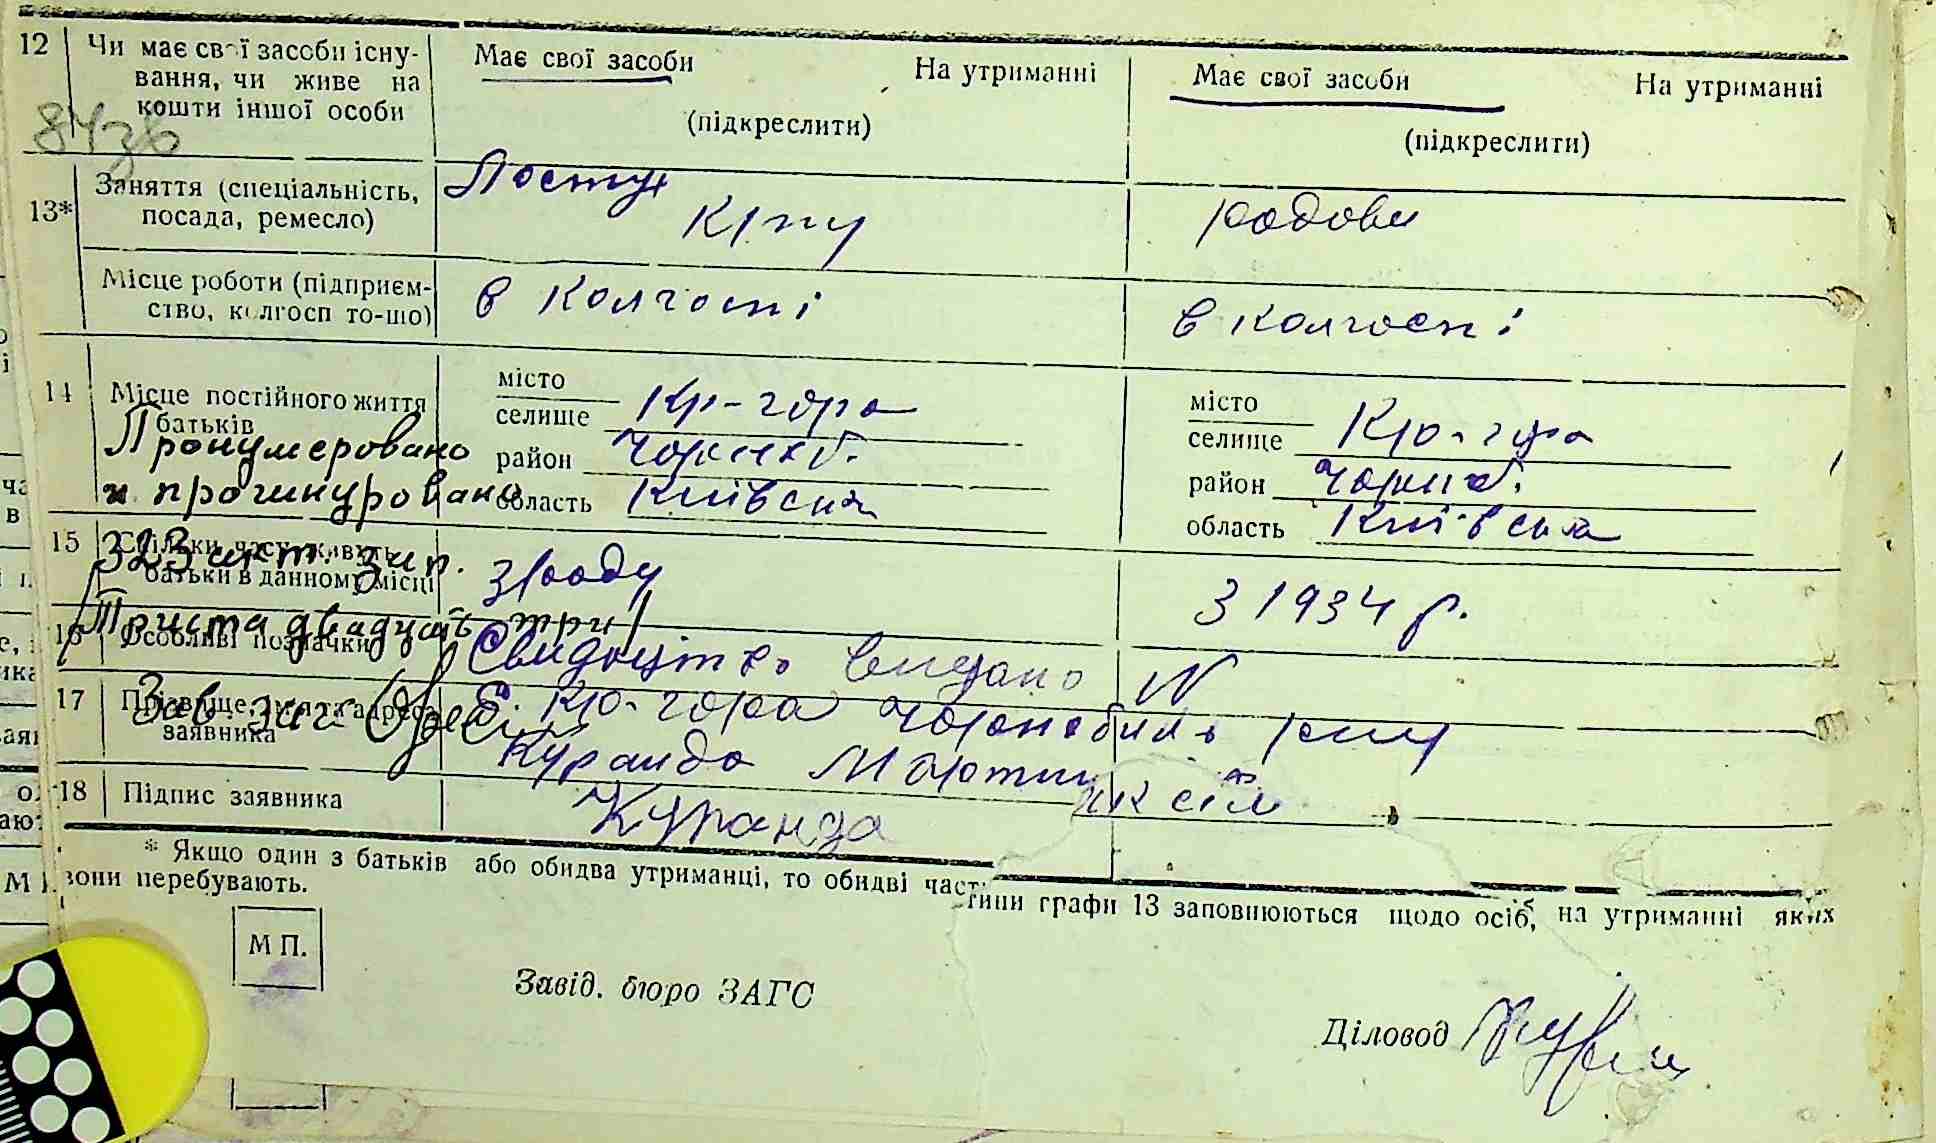 12 Чи має свої засоби існу-
вання, чи живе на
кошти іншої особи
Має свої засоби На утриманні
(підкреслити)
Має свої засоби На утриманні
(підкреслити)
13* Заняття (спеціальність,
посада, ремесло)
Пастух
родови
Місце роботи (підприєм-
ство, колгосп то-що)
в колгоспі
в колгоспі
14 Місце постійного життя
батьків
місто
селище Кр-гора
район Чорноб.
область Київська
місто
селище Кр-гора
район Чорноб.
область Київська
Пронумеровано
и прошнуровано
323 акт. зап.
/Триста двадцать три/
Зав. загс
15 Скільки часу живуть
батьки в данному місці
зроду
З 1934 р.
16 Особливі позначки
Свидоцтво видано N
17 Прізвище, ім'я та адреса
заявника
С. Кр-гора Чорнобиль р-ну
Куранда
18 Підпис заявника
Куранда
* Якщо один з батьків або обидва утриманці, то обидві частини графи 13 заповнюються щодо осіб, на утриманні яких
вони перебувають.
М П.
Завід. бюро ЗАГС
Діловод